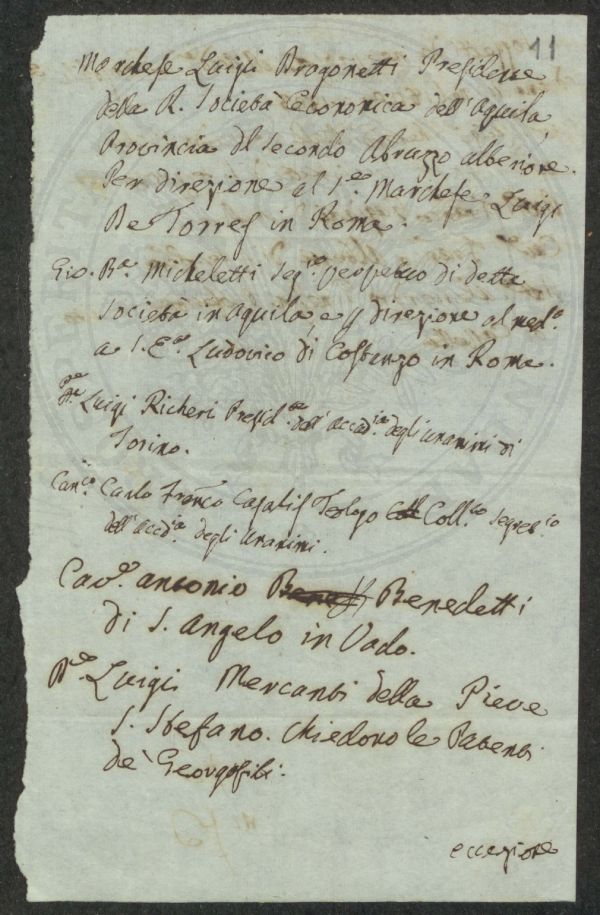 11
Marchese Luigi Dragonetti Presidente
della R. Società economica dell'Aquila
Provincia del Secondo Abruzzo ulteriore.
Per direzione al S.e Marchese Luigi
De Torres in Roma.
Gio. Ba. Micheletti Seg.io perpetuo di detta
Società in Aquila, e p direzione al med.o
a S. E.a Ludovico di Costanzo in Roma.
Luigi Richeri Presid.te dell'accad.ia degli unanimi di
Torino.
Can.co Carlo Franco Casalis Teologo Coll.to Segret.io
dell'accd.ia degli unanimi.
Cav.e antonio Benedetti
di S. angelo in Vado.
D.e Luigi Mercanti della Pieve
S. Stefano. chiedono le Patenti
de' Georgofili.
eccezione